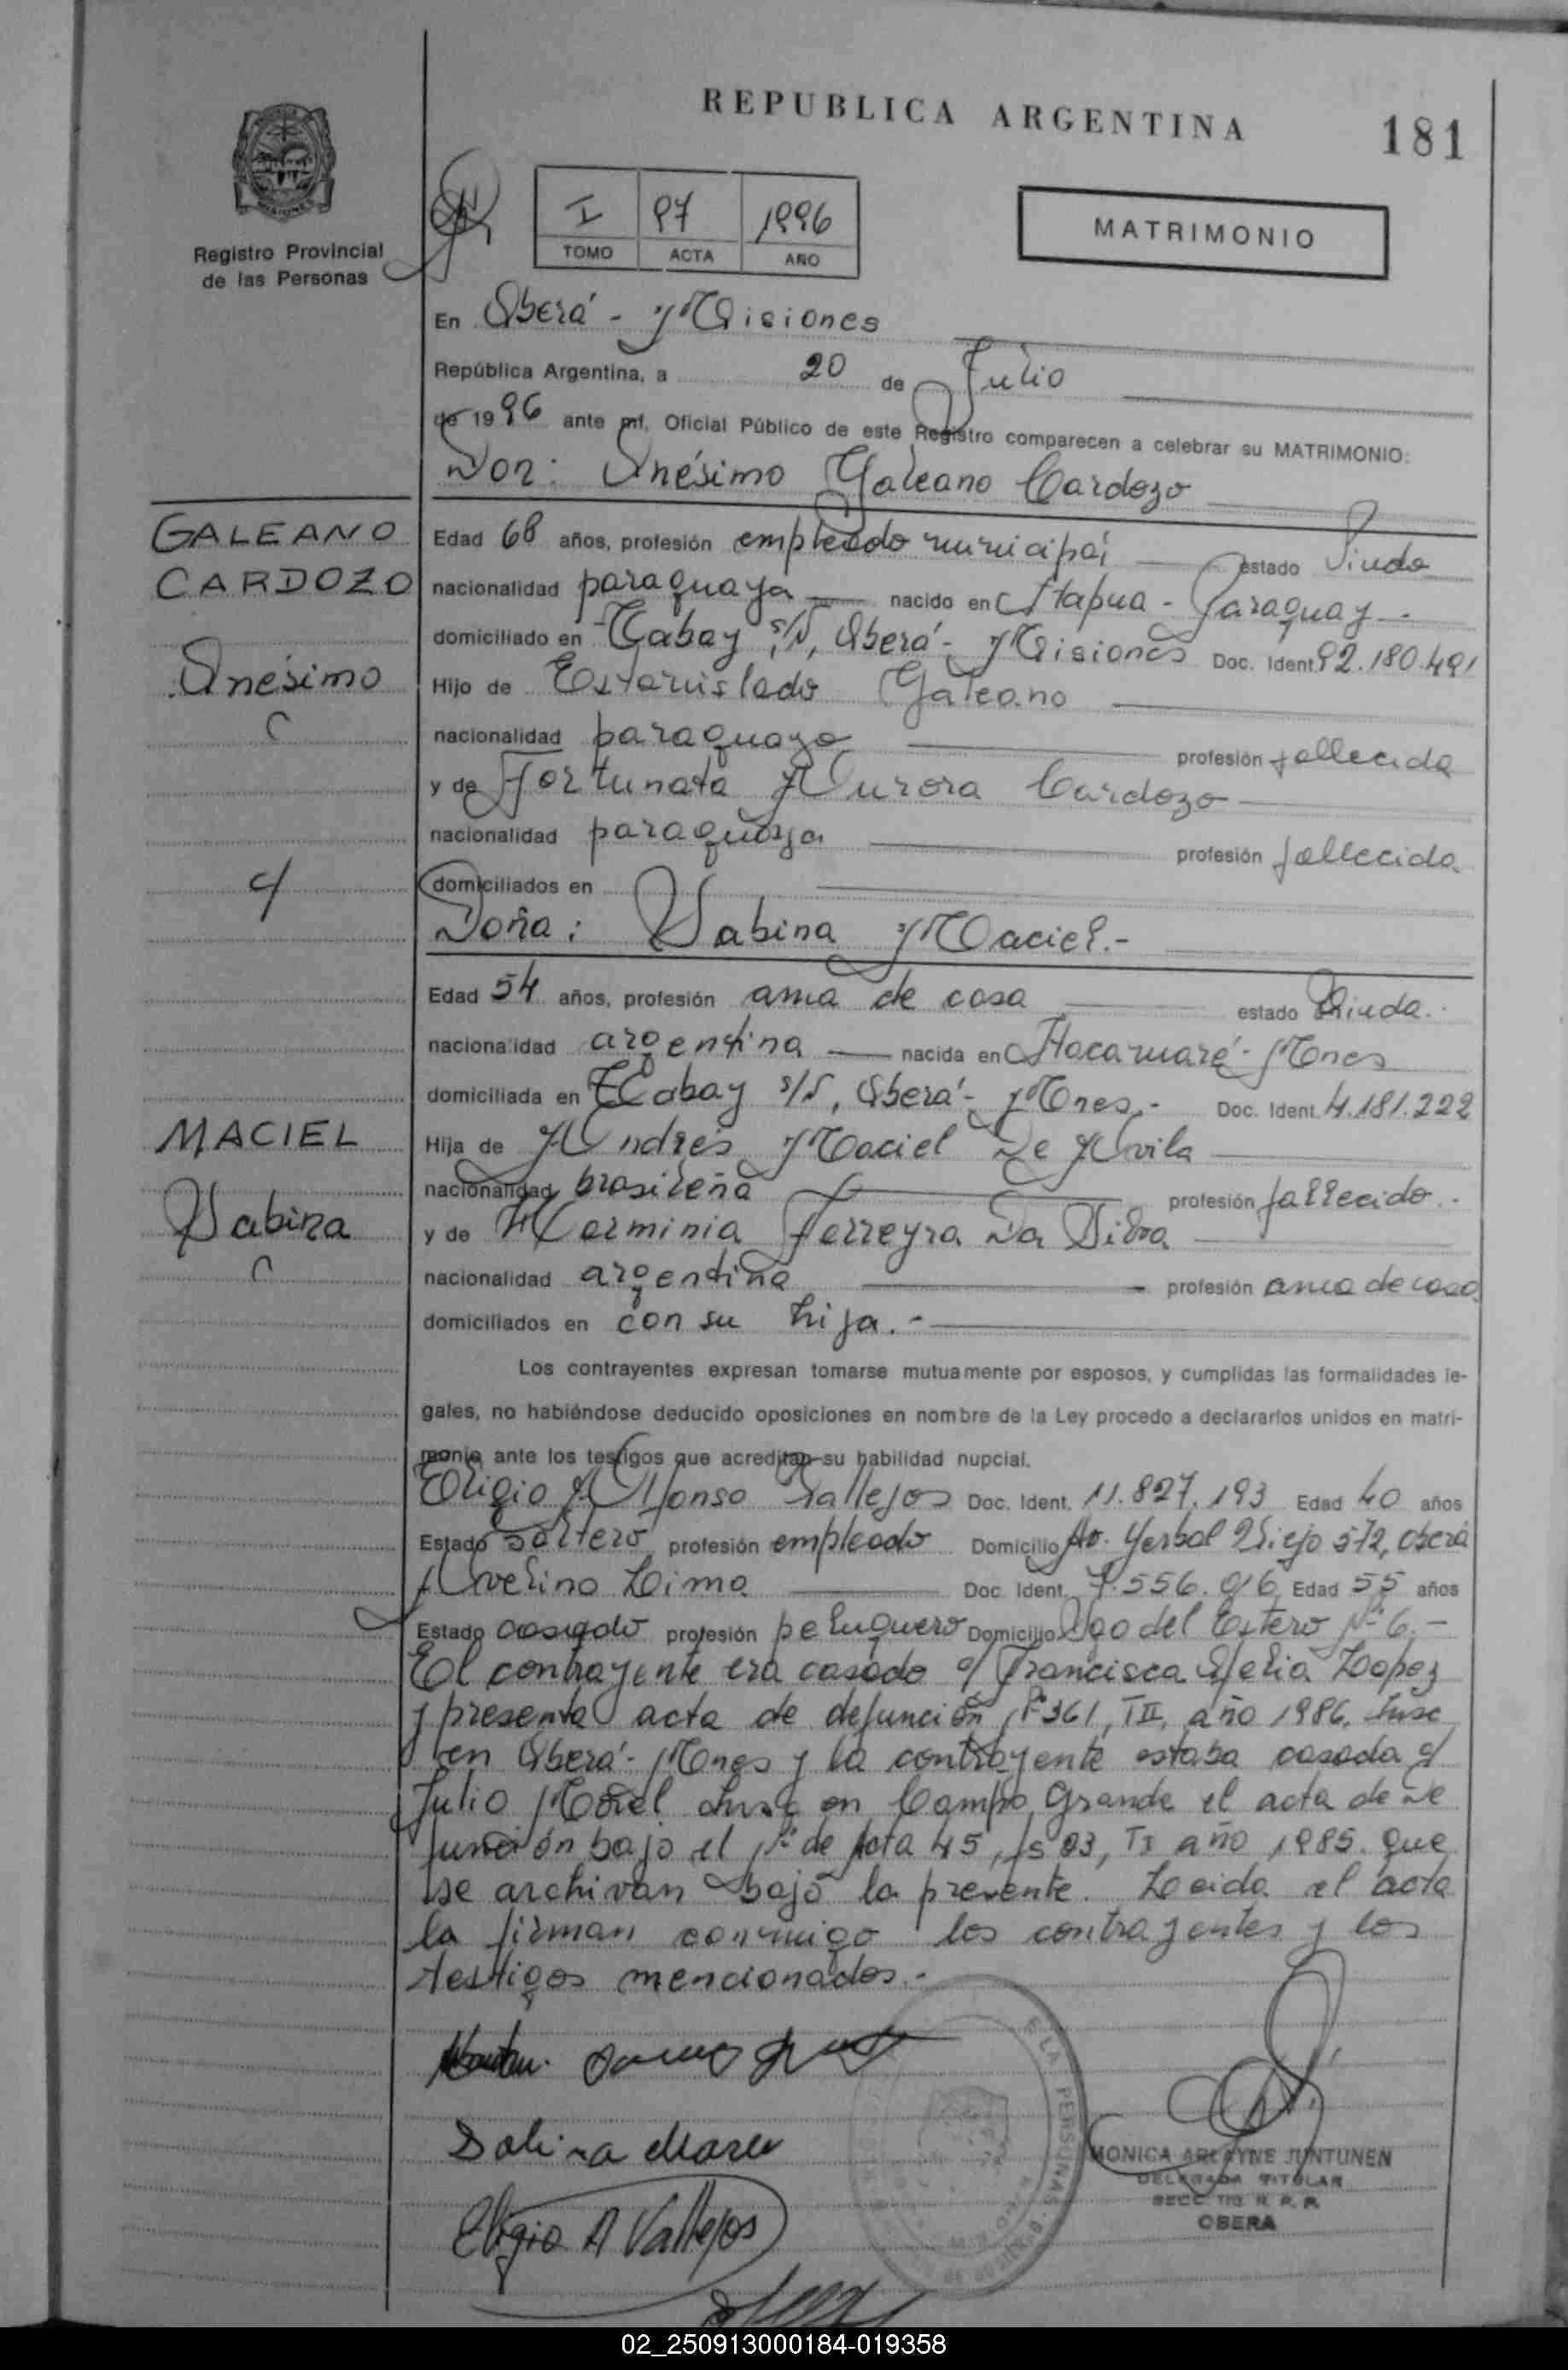 REPUBLICA ARGENTINA
181
Registro Provincial
de las Personas
I 97 1996
TOMO ACTA AÑO
MATRIMONIO
En Oberá - Misiones
República Argentina, a 20 de Julio
de 1996 ante mí, Oficial Público de este Registro comparecen a celebrar su MATRIMONIO:
Don: Onésimo Galeano Cardozo
GALEANO
CARDOZO
Onésimo
c/
MACIEL
Sabina
Edad 68 años, profesión empleado municipal estado Viudo
nacionalidad paraguaya nacido en Itapua - Paraguay -
domiciliado en Tabay s/N, Oberá - Misiones Doc. Ident. 92.180.491
Hijo de Estanislado Galeano
nacionalidad paraguaya profesión fallecida
y de Fortunata Aurora Cardozo
nacionalidad paraguaya profesión fallecida
domiciliados en
Doña: Sabina Maciel.-
Edad 54 años, profesión ama de casa estado Viuda.
nacionalidad argentina nacida en Itacaruaré - Mnes
domiciliada en Tabay s/N, Oberá - Mnes.- Doc. Ident. 4.181.222
Hija de Andrés Maciel De Avila
nacionalidad brasileña profesión fallecido.-
y de Herminia Ferreyra Da Silva
nacionalidad argentina profesión ama de casa
domiciliados en con su hija.-
Los contrayentes expresan tomarse mutuamente por esposos, y cumplidas las formalidades le-
gales, no habiéndose deducido oposiciones en nombre de la Ley procedo a declararlos unidos en matri-
monio ante los testigos que acreditan su habilidad nupcial.
Eligio Alfonso Vallejos Doc. Ident. 11.827.193 Edad 40 años
Estado soltero profesión empleado Domicilio Av. Yerbal Viejo 572, Oberá
Avelino Lima Doc. Ident. 7.556.916 Edad 55 años
Estado casado profesión peluquero Domicilio Sgo del Estero Nº 6.-
El contrayente era casado c/ Francisca Lopez
y presenta acta de defunción Nº 361, TII, año 1986. Insc
en Oberá - Mnes y la contrayente estaba casada c/
Julio Insc en Campo Grande el acta de de
función bajo el Nº de Acta 45, fs 93, TI año 1985. que
se archivan bajo la presente. Leida el acta
la firman conmigo los contrayentes y los
testigos mencionados.-
Eligio A Vallejos
MONICA ARLAYNE JUNTUNEN
DELEGADA TITULAR
OBERA
02_250913000184-019358